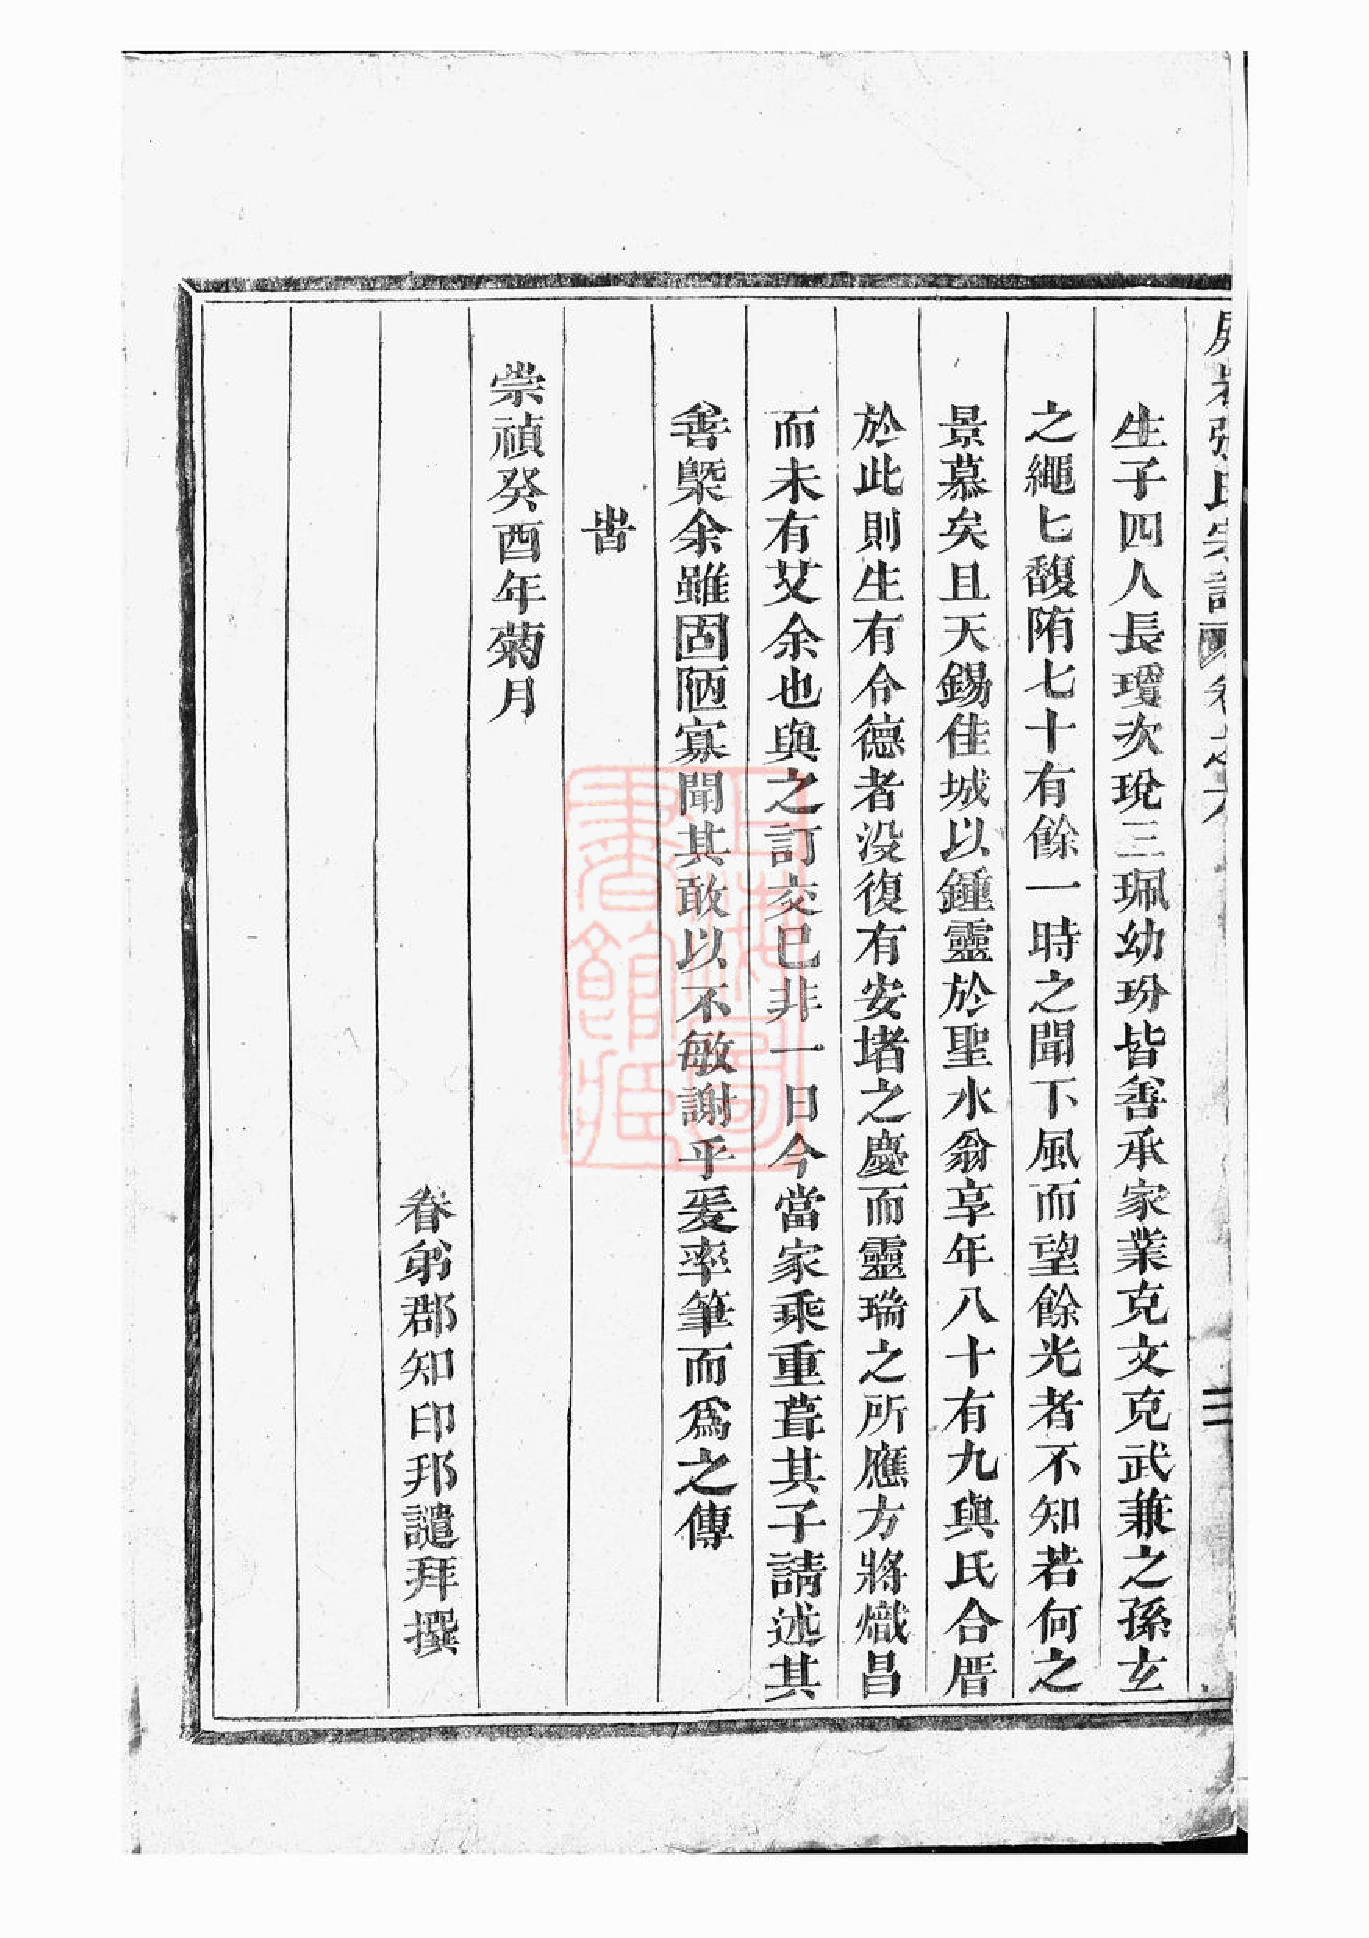 張氏宗譜 卷之六
生子四人長瓊次玧三珮幼玢皆善承家業克文克武兼之孫玄
之繩匕馥陏七十有餘一時之聞下風而望餘光者不知若何之
景慕矣且天錫佳城以鍾靈於聖水翁享年八十有九與氏合厝
於此則生有令德者没復有安堵之慶而靈瑞之所應方將熾昌
而未有艾余也與之訂交巳非一日今當家乘重葺其子請述其
善槩余雖固陋寡聞其敢以不敏謝乎爰率筆而爲之傳
旹
崇禎癸酉年菊月
眷弟郡知印邦譴拜撰
上海圖書館藏